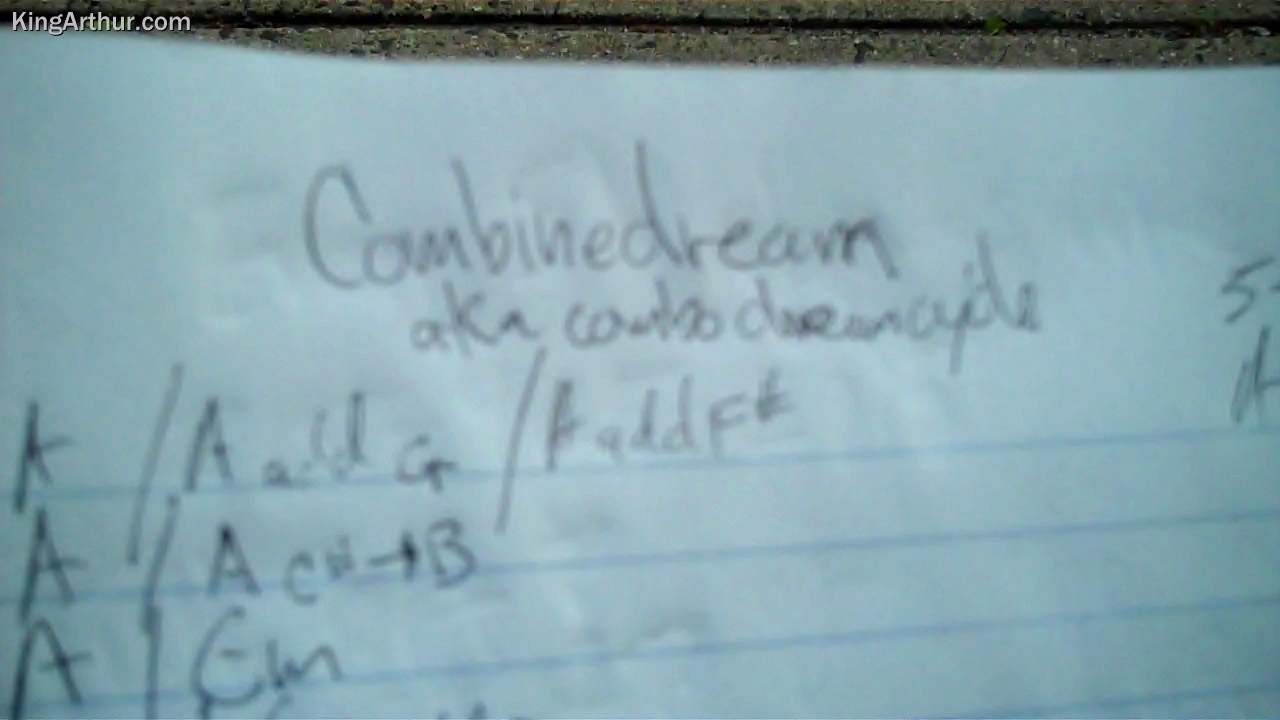 KingArthur.com
Combinedream
aka combo dreamcycle
5
A / A add G / A add F#
A
A / A C# → B
A / Em